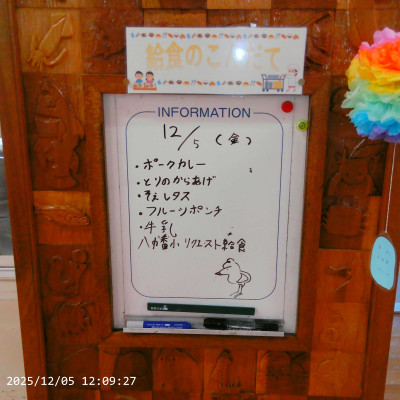 給食のこんだて
INFORMATION
12/5 (金)
・ポークカレー
・とりのからあげ
・そえレタス
・フルーツポンチ
・牛乳
八幡小リクエスト給食
2025/12/05 12:09:27